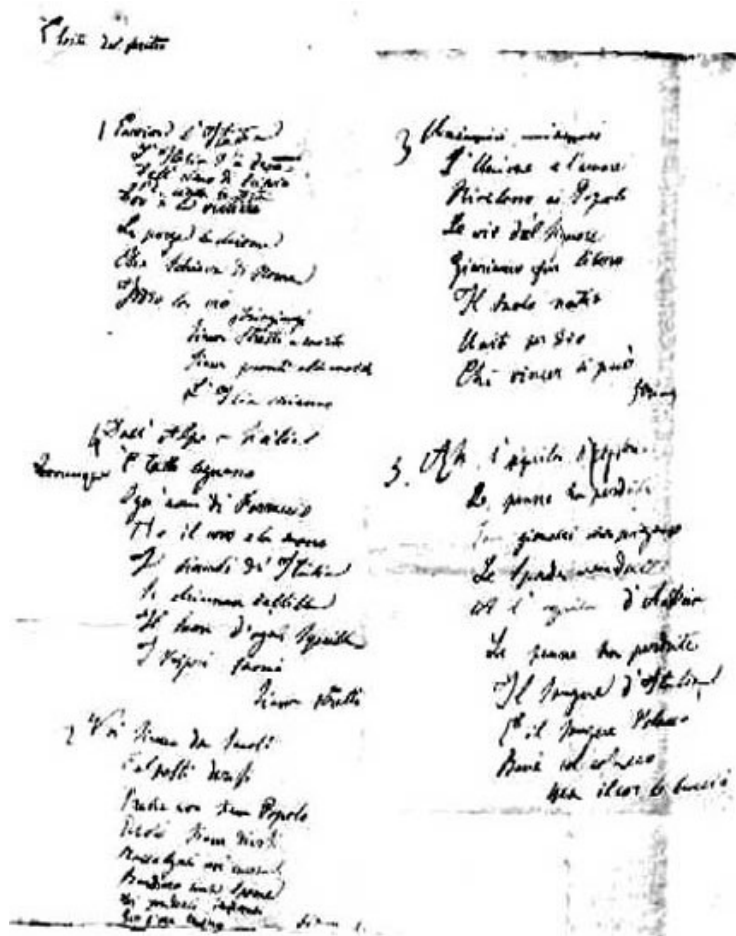 1
L'Italia s'è desta
Dell'elmo di Scipio
Dov'è la vittoria
Le porga la chioma
Che schiava di Roma
Iddio la creò
Stringiamci
Siam pronti alla morte
L'Italia chiamò
4 Dall' Alpe a Sicilia
È tutto Legnano
Ogn' uom di Ferruccio
Ha il core e la mano
I bimbi d' Italia
Si chiaman Balilla
Il suon d'ogni squilla
I Vespri suonò
Siam stretti
2 Noi siamo da secoli
Calpesti derisi
Perché non siam Popolo
Perché siam divisi
Raccolgaci un'unica
Bandiera una speme
Di fonderci insieme
Già l'ora suonò
3 Uniamoci
L'Unione e l'amore
Rivelano ai Popoli
Le vie del Signore
Giuriamo far libero
Il suolo natio
Uniti per Dio
Chi vincer ci può
5. Ah l'aquila
Le penne ha perdute
Le spade vendute
l'aquila d'Austria
Le penne ha perdute
Il sangue d'Italia
il sangue Polacco
Bevé col cosacco
il cor le bruciò